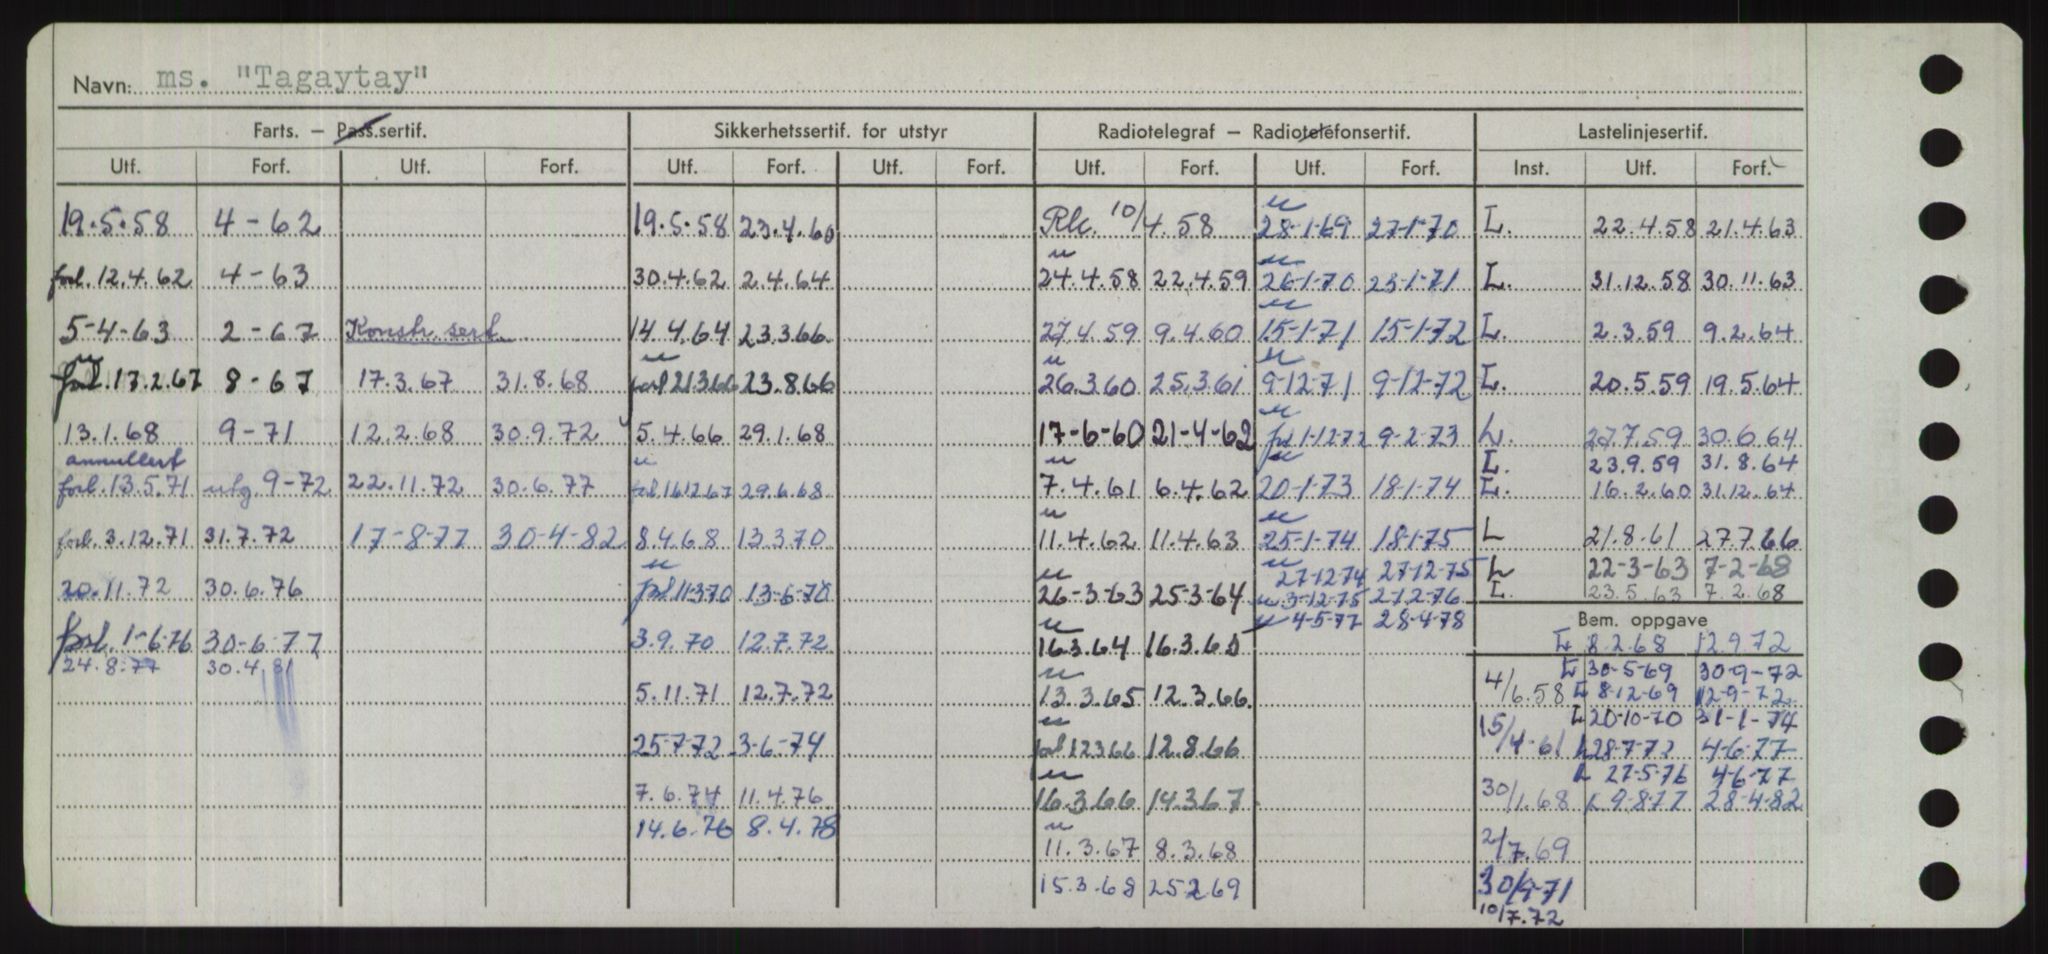 Navn: ms. "Tagaytay"
Farts. — Pass.sertif. Sikkerhetssertif. for utstyr Radiotelegraf — Radiotelefonsertif. Lastelinjesertif.
Utf. Forf. Utf. Forf. Utf. Forf. Utf. Forf. Utf. Forf. Utf. Forf. Inst. Utf. Forf.
19.5.58 4-62 19.5.58 23.4.60 Rlc. 10/4.58 " 28-1-69 27-1-70 L. 22.4.58 21.4.63
forl. 12.4.62 4-63 30.4.62 2.4.64 " 24.4.58 22.4.59 " 26-1-70 23-1-71 L. 31.12.58 30.11.63
5-4-63 2-67 Konstr. sert. 14.4.64 23.3.66 27.4.59 9.4.60 " 15-1-71 15-1-72 L. 2.3.59 9.2.64
" forl. 17.2.67 8-67 17.3.67 31.8.68 " forl 21.3.66 23.8.66 " 26.3.60 25.3.61 " 9-12-71 9-12-72 L. 20.5.59 19.5.64
13.1.68 9-71 12.2.68 30.9.72 5.4.66 29.1.68 17-6-60 21-4-62 " forl 1-12-72 9-2-73 L. 27.7.59 30.6.64
annullert L. 23.9.59 31.8.64
forl. 13.5.71 utg. 9-72 22.11.72 30.6.77 " forl 16.12.67 29.6.68 " 7.4.61 6.4.62 " 20-1-73 18-1-74 L. 16.2.60 31.12.64
forl. 3.12.71 31.7.72 17-8-77 30-4-82 8.4.68 13.3.70 " 11.4.62 11.4.63 " 25-1-74 18-1-75 L 21.8.61 27.7.66
" 27-12-74 27-12-75 L 22-3-63 7-2-68
20.11.72 30.6.76 " forl 11-3-70 13-6-70 " 26-3-63 25-3-64 " 3-12-75 2-12-76 L. 23.5.63 7.2.68
" 4-5-77 28-4-78 Bem. oppgave
forl. 1-6-76 30-6-77 3.9.70 12.7.72 " 16.3.64 16.3.65 L 8.2.68 12.9.72
24.8.77 30.4.81 L 30-5-69 30-9-72
5.11.71 12.7.72 " 13.3.65 12.3.66 4/6.58 L 8-12-69 12-9-72
L 20-10-70 31-1-74
25-7-72 3-6-74 " forl 12.3.66 12.8.66 15/4-61 L 28-7-72 4-6-77
L 27-5-76 4-6-77
7.6.74 11.4.76 " 16.3.66 14.3.67 30/1.68 L 9-8-77 28-4-82
14.6.76 8.4.78
" 11.3.67 8.3.68 2/7.69
15.3.68 25.2.69 30/9-71
10/7.72